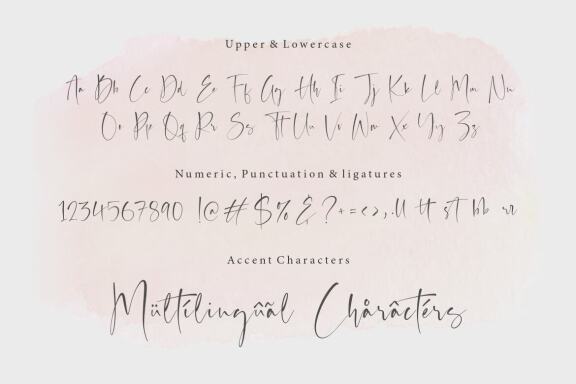 Upper & Lowercase
Aa Bb Cc Dd Ee Ff Gg Hh Ii Jj Kk Ll Mm Nn
Oo Pp Qq Rr Ss Tt Uu Vv Ww Xx Yy Zz
Numeric, Punctuation & ligatures
1234567890 !@#$%&?+=<>,. ll tt st bb rr
Accent Characters
Mültílingûãl Chåraĉtérs